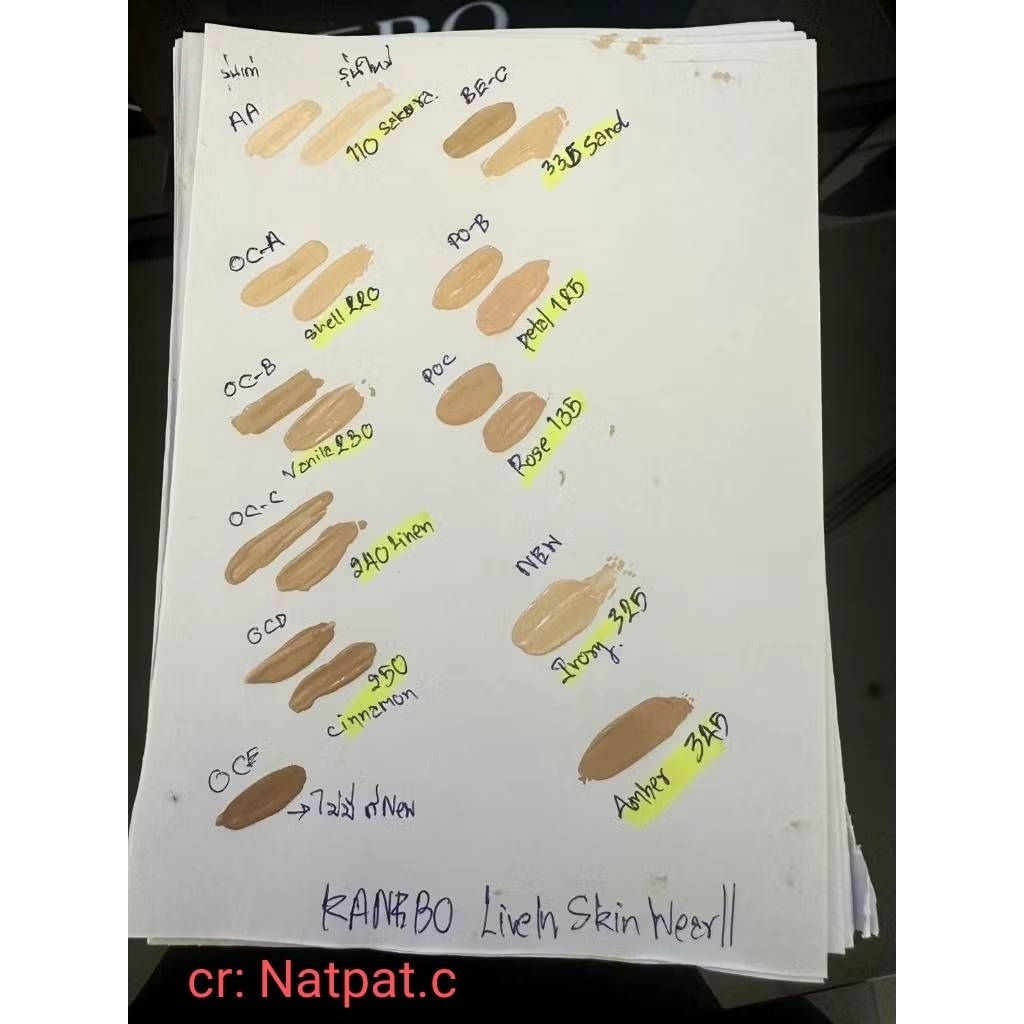 รุ่นเก่า รุ่นใหม่
AA 110 Sakura.
BE-C 335 Sand
OC-A Shell 220
PO-B Petal 125
OC-B Vanila 230
POC Rose 135
OC-C 240 Linen
NEW Ivory. 325
OCD 250 cinnamon
Amber 345
OCE → ไม่มี สี New
KANEBO LiveIn Skin Wear II
cr: Natpat.c